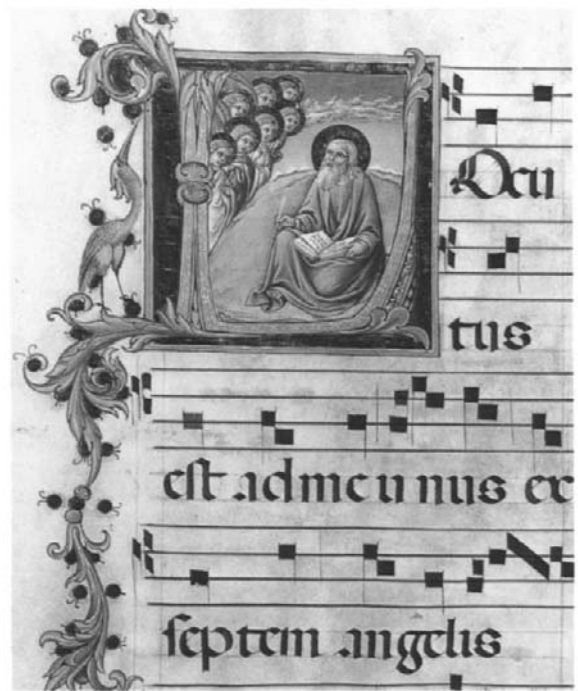 LOcu
tus
est ad me unus ex
septem angelis